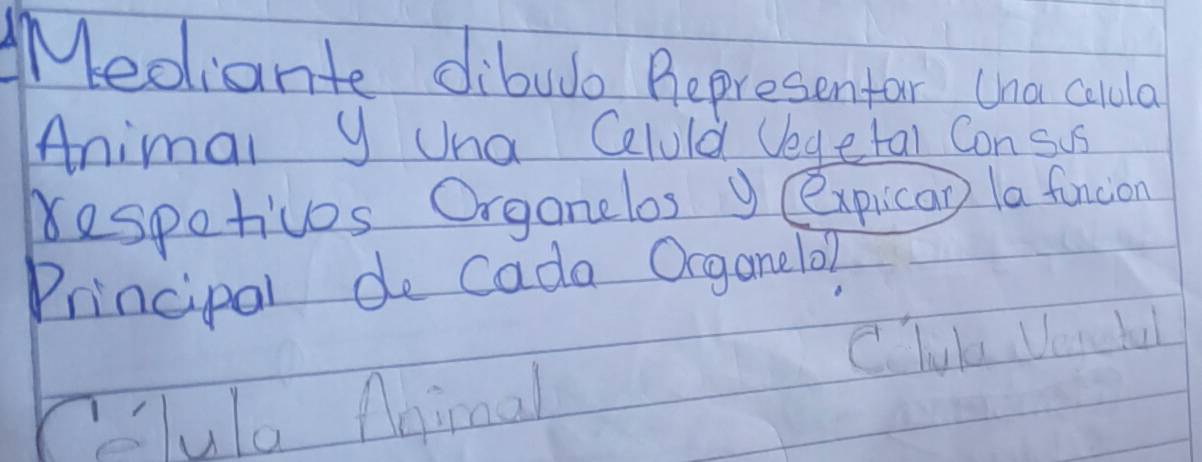 Mediante dibujo Representar Una celula
Animal y Una Celula Vegetal Con sus
respetivos Organelos y explicar la funcion
Principal de Cada Organelo?
Célula Animal
Célula Vegetal